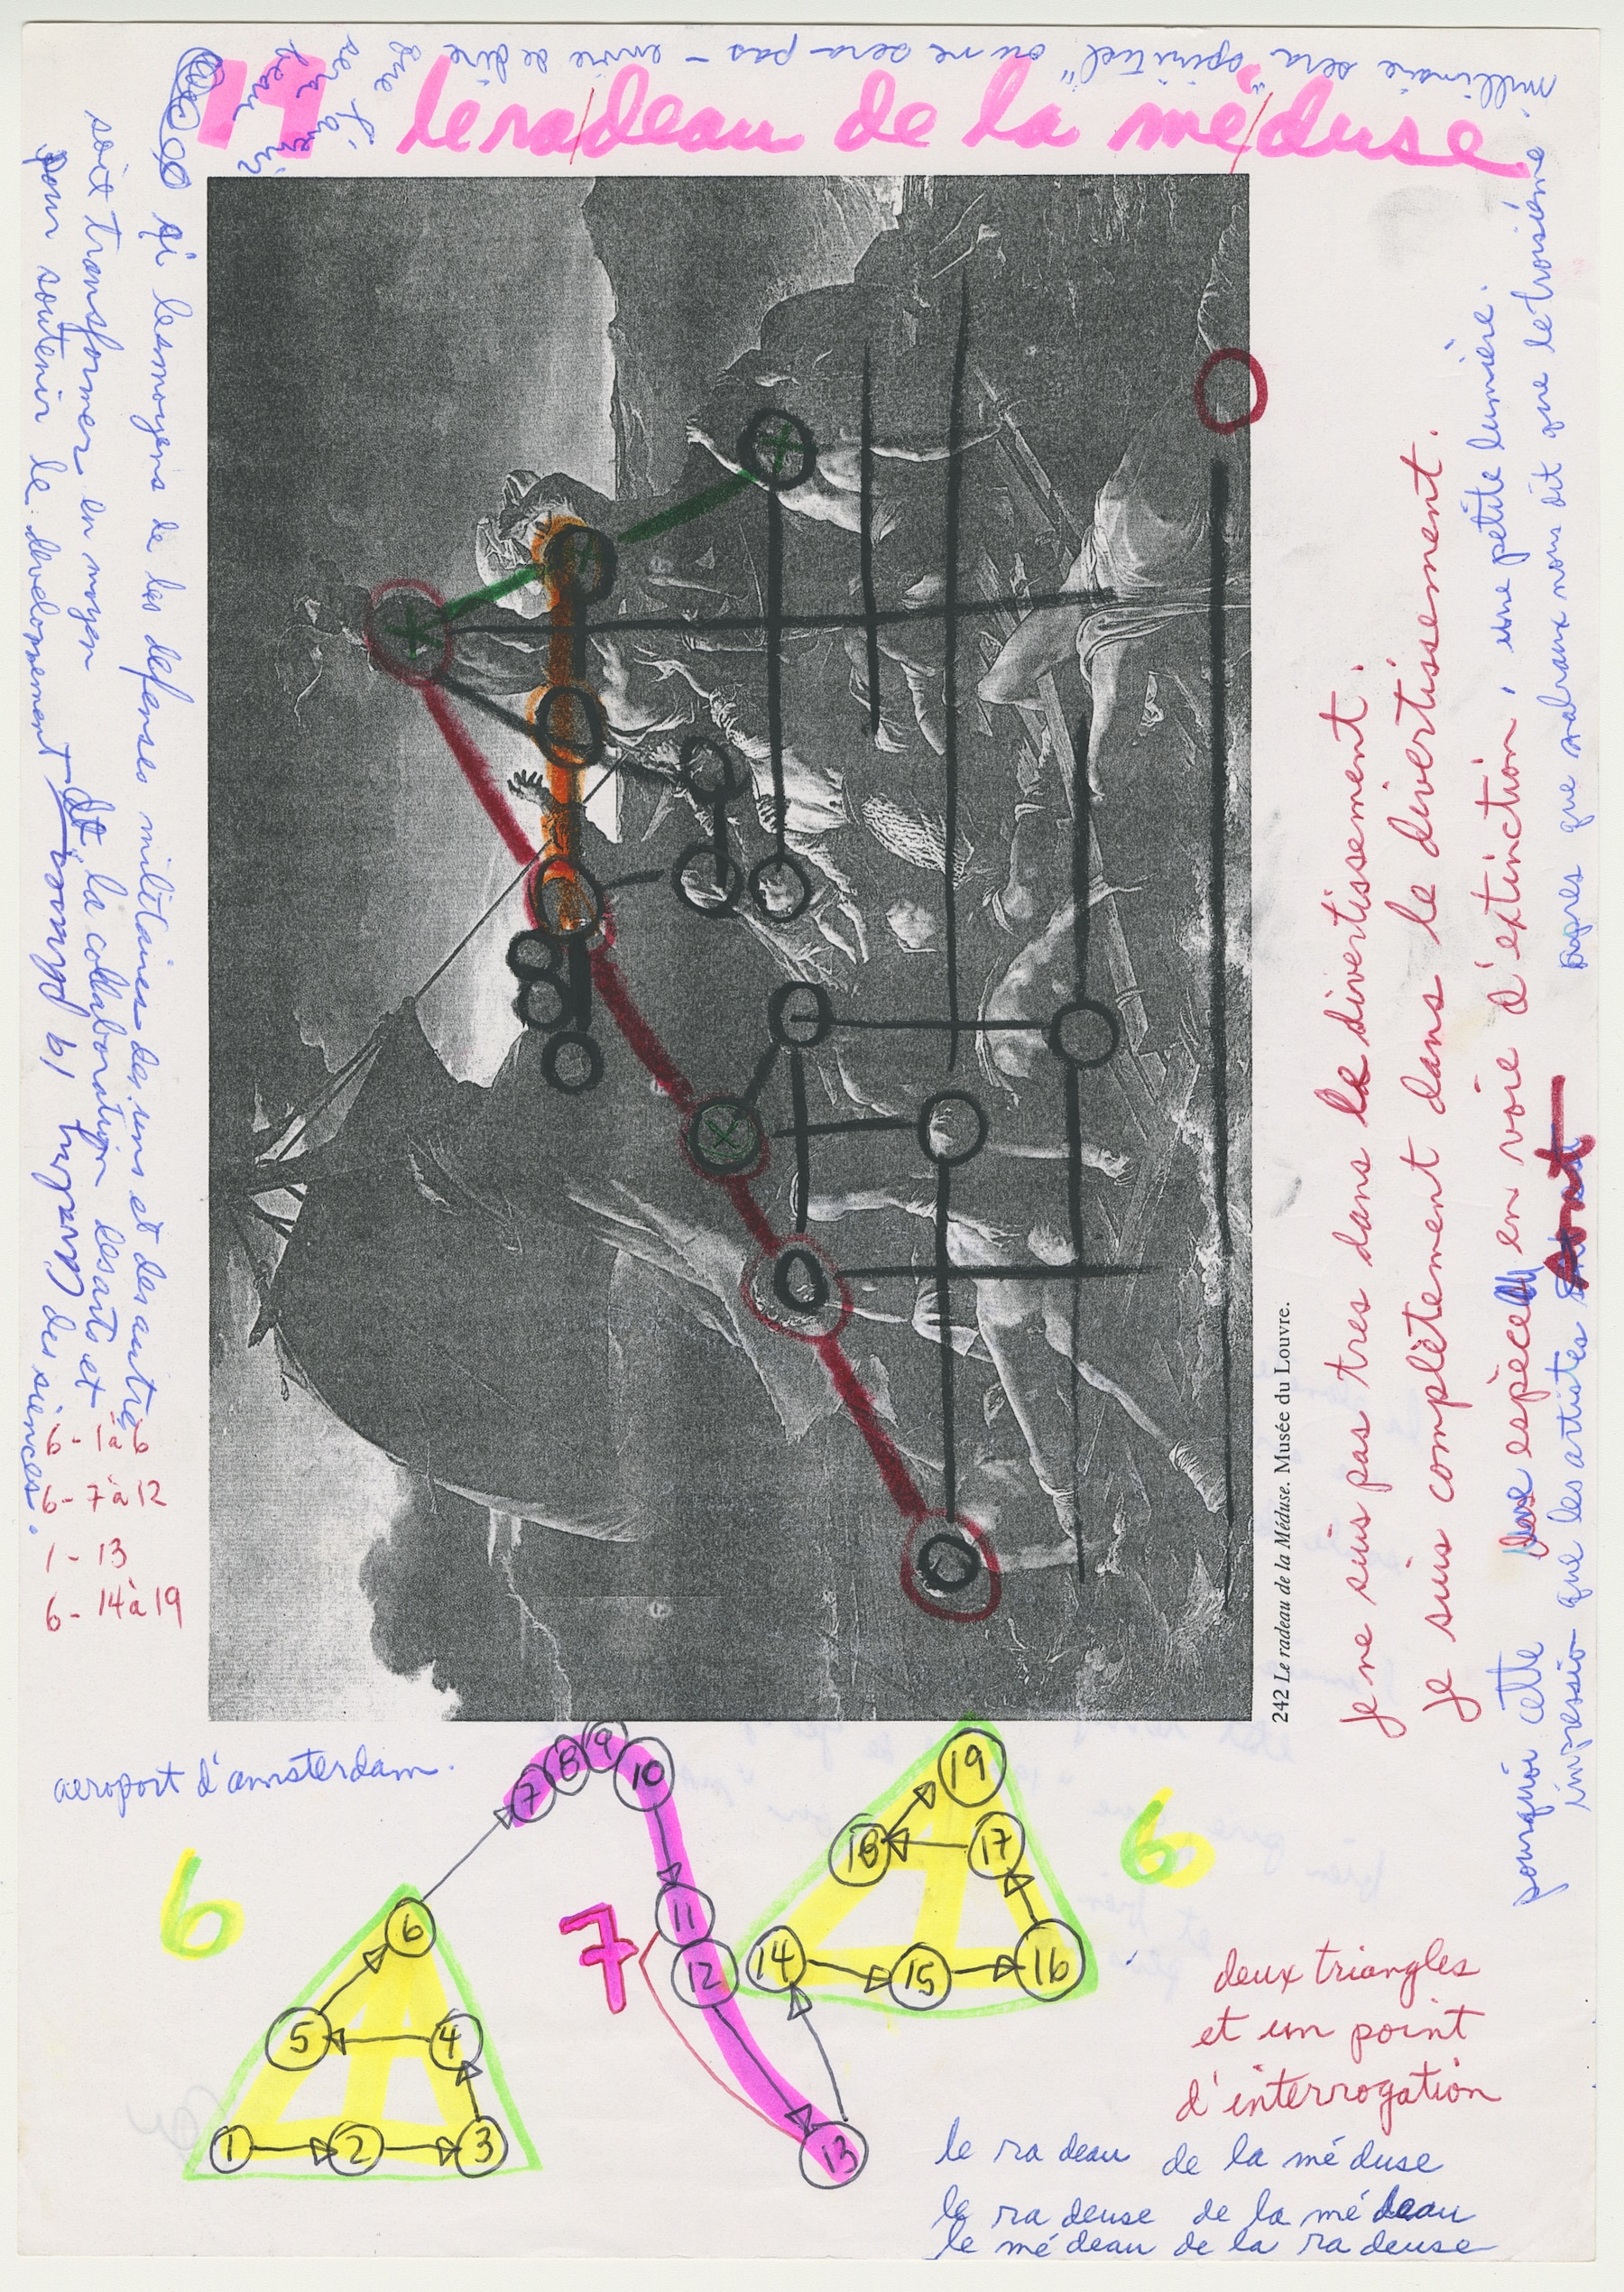 14 le radeau de la méduse
millénaire sera "spirituel" ou ne sera pas - envie de dire
que l'avenir
sera
beau
si les moyens de les défenses militaires des uns et des autres
soit transformer en moyen
pour soutenir le dévelopement
et la collaboration des arts et
des siences.
6 - 1 à 6
6 - 7 à 12
1 - 13
6 - 14 à 19
242 Le radeau de la Méduse. Musée du Louvre.
je ne suis pas tres dans le divertissement.
je suis complètement dans le divertissement.
pourquoi cette
espèce en voie d'extinction, une petite lumière.
impression que les artistes sont
apres que malraux nous dit que le troisième
aeroport d'amsterdam.
6
1 2 3 4 5 6
7
7 8 9 10 11 12 13
6
14 15 16 17 18 19
deux triangles
et un point
d'interrogation
le ra deau de la mé duse
le ra deuse de la mé deau
le mé deau de la ra deuse